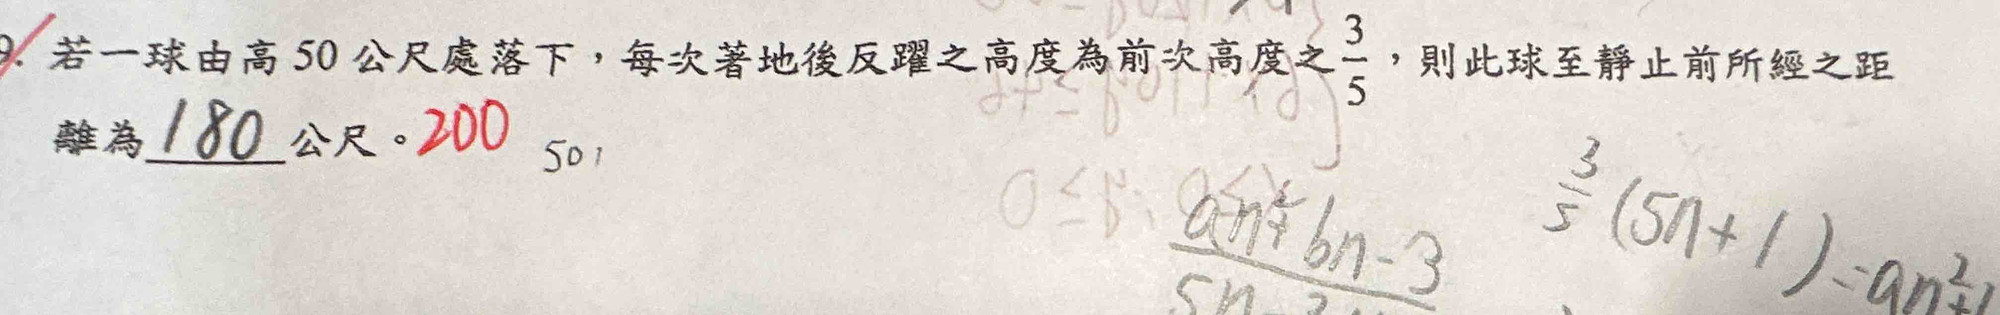 9. 若一球由高 50 公尺處落下，每次著地後反躍之高度為前次高度之 3/5，則此球至靜止前所經之距
離為 180 公尺。200
501
3/5 (5n+1) = an²+
an²+bn-3